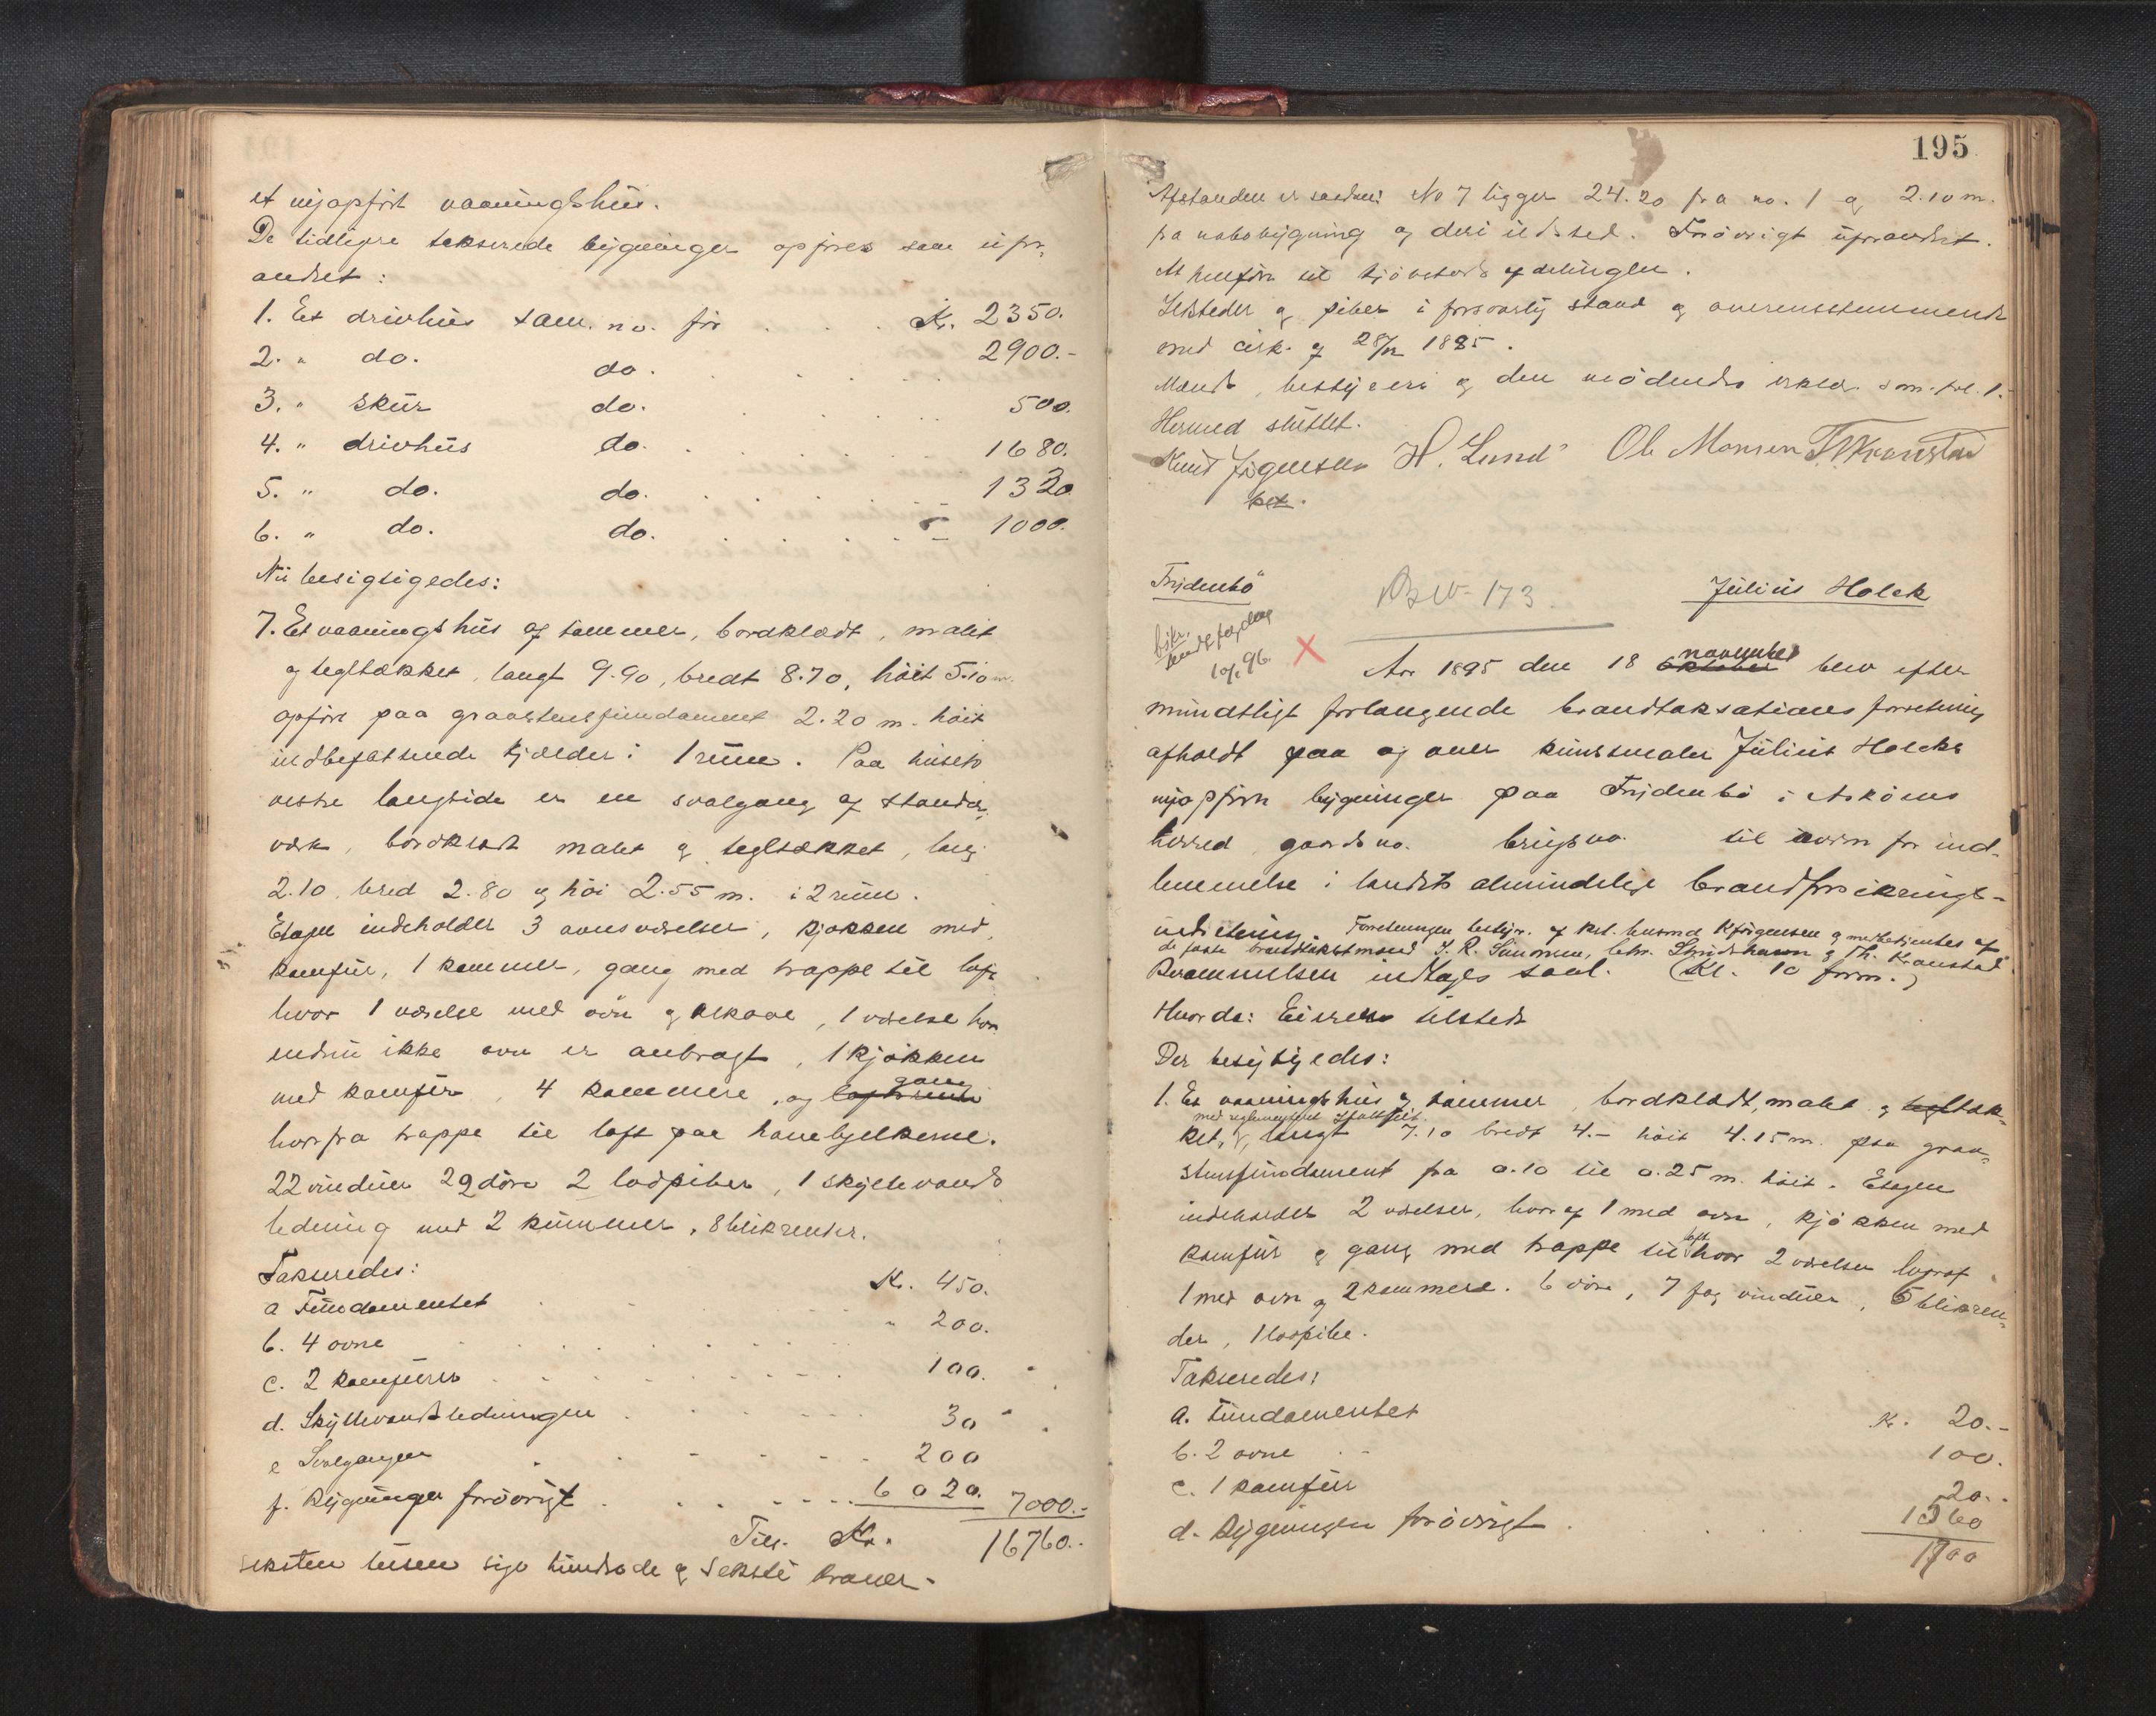 et nyopfört vaaningshus.
De tidligere takserede bygninger opföres som ufor-
andret:
1. Et drivhus tam. no. för . . . Kr. 2350.
2. " do. do. . . . 2900.-
3. " skur do. . . . 500.
4. " drivhus do. . . . 1680.
5. " do. do. . . . 1320
6. " do. do. . . . 1000.
Nu besigtigedes:
7. Et vaaningshus af tömmer, bordklædt, malet
og tegltækket, langt 9.90, bredt 8.70, höit 5.10 m.
opfört paa graastensfundament 2.20 m. höit
indbefattende kjælder i 1 rum. Paa husets
vestre langside er en svalgang af stender-
værk, bordklædt malet og tegltækket, lang
2.10, bred 2.80 og höi 2.55 m. i 2 rum.
Etagen indeholder 3 ovnsværelser, kjøkken med
komfur, 1 kammer, gang med trappe til loft
hvor 1 værelse med ovn og alkove, 1 værelse hvor
endnu ikke ovn er anbragt, 1 kjøkken
med komfur, 4 kammere, og gang
hvorfra trappe til loft paa hanebjelkerne.
22 vinduer 22 döre 2 lodpiber, 1 skyllevands
ledning med 2 kummer, 8 blikrender.
Takseredes:
a Fundamentet Kr. 450.
b. 4 ovne " 200.
c. 2 komfurer 100.
d. Skyllevandsledningen 30
e Svalgangen 200
f. Bygningen forövrigt 6020. 7000.-
Tils. Kr. 16760.-
seksten tusen syv hundrede og seksti kroner.
195
Afstanden er saadan: No 7 ligger 24.20 fra no. 1 og 2.10 m.
fra nabobygning og deri ildsted. Forövrigt uforandret.
At henföre til afdelingen.
Ildsteder og piber i forsvarlig stand og overensstemmende
med cirk. af 28/12 1885.
Mænd, bestyrer og den mödende erklær. som fol. 1.
Hermed sluttet.
Knut Jörgensen H. Lund Ole Monsen T. Kronstad
bet.
"Frydenbö" BW- 173. Julius Holck
10/1 96. X
Aar 1895 den 18 oktober november blev efter
mundtligt forlangende brandtaksationsforretning
afholdt paa og over kunstmaler Julius Holcks
nyopförte bygninger paa Frydenbö i Asköens
herred, gaardsno. brugsno. til norm for ind-
lemmelse i landets almindelige brandforsikrings-
indretning. Forretningen bestyr. af kst. lensmd K Jörgensen og medbetjentes af
de faste brandtakstmænd
Bevammelsen indtages saal. (Kl. 10 form.)
Hvorda: Eieren tilstede
Der besigtigedes:
1. Et vaaningshus af tömmer, bordklædt, malet og tegltæk-
ket, langt 7.10 bredt 4.- höit 4.15 m. paa graa-
stensfundament fra 0.10 til 0.25 m. höit. Etagen
indeholder 2 værelser, hvoraf 1 med ovn, kjökken med
komfur og gang med trappe til loft hvor 2 værelser hvoraf
1 med ovn og 2 kammere. 6 döre, 7 fag vinduer, 5 blikren-
der, 1 lodpibe.
Takseredes:
a. Fundamentet Kr. 20.-
b. 2 ovne 100.
c. 1 komfur 20.-
d. Bygningen forövrigt 1560
1700